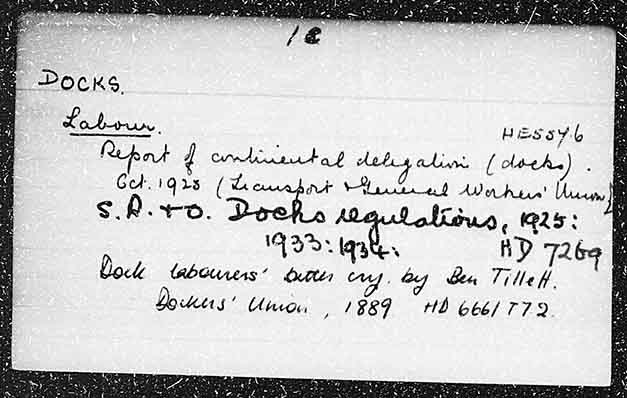 1c
DOCKS.
Labour.
HE5546
Report of continental delegation (docks).
Oct. 1925 (Transport & General Workers' Union)
S.R.+O. Docks regulations, 1925:
1933: 1934: HD 7269
Dock labourers' bitter cry. by Ben Tillett.
Dockers' Union, 1889 HD 6661 T72.